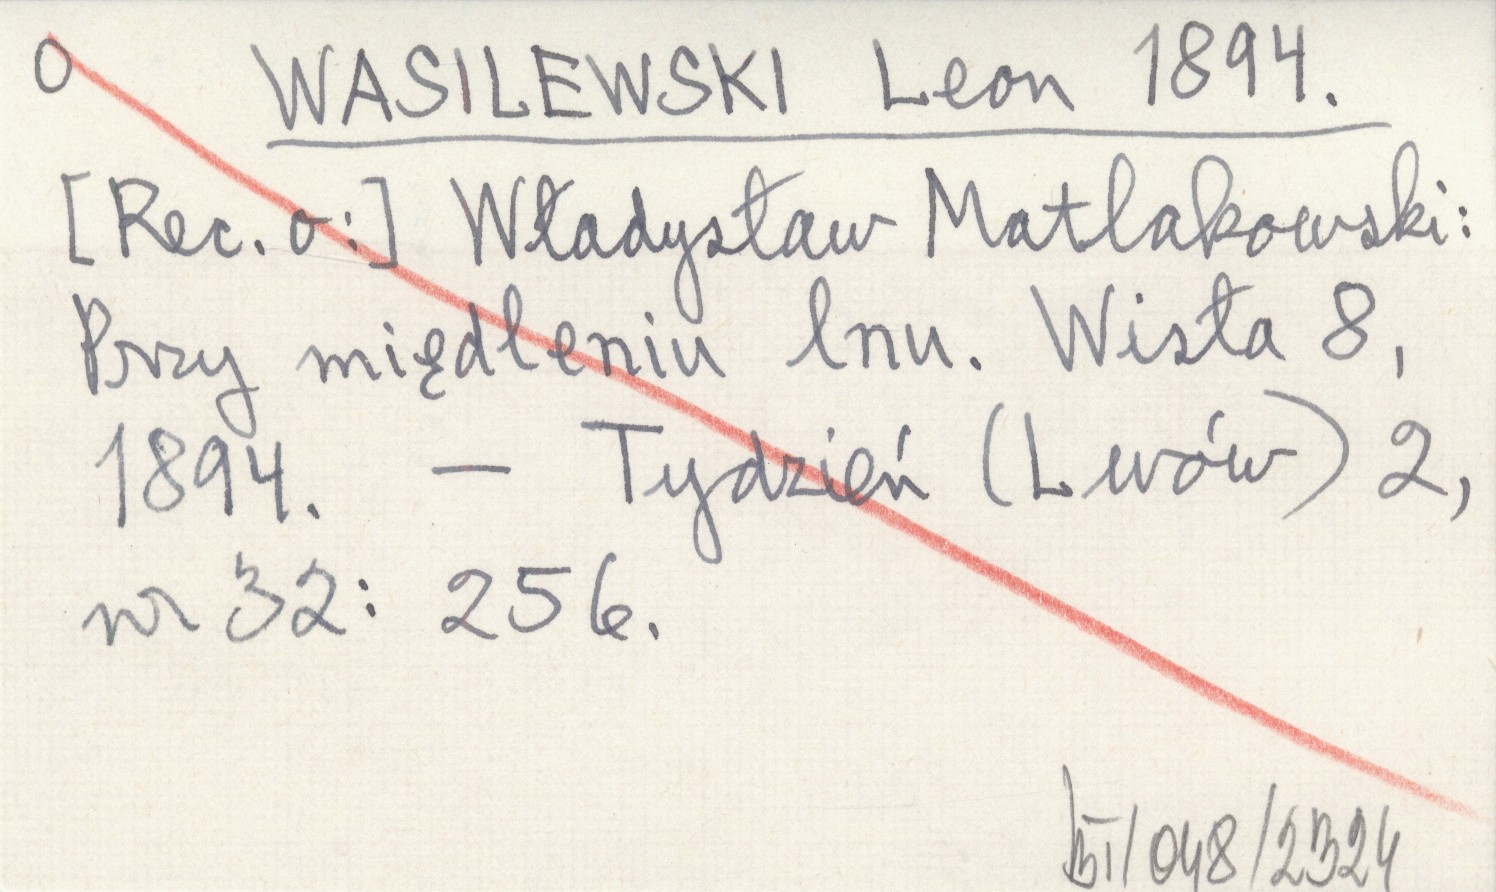 O WASILEWSKI Leon 1894.
[Rec. o:] Władysław Matlakowski:
Przy międleniu lnu. Wisła 8,
1894. — Tydzień (Lwów) 2,
nr 32: 256.
/048/2324